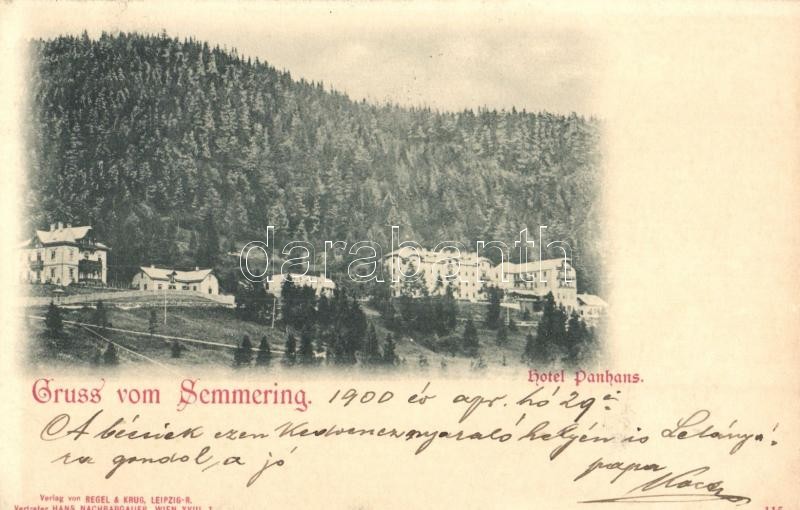 darabanth
Gruss vom Semmering.
Hotel Panhans.
1900 év apr. hó 29én
A bécsiek ezen Kedvencz nyaraló helyén is Leányá-
ra gondol, a jó
papa
Verlag von REGEL & KRUG, LEIPZIG-R.
Vertreter HANS NACHBARGAUER, WIEN XVIII. 1
115